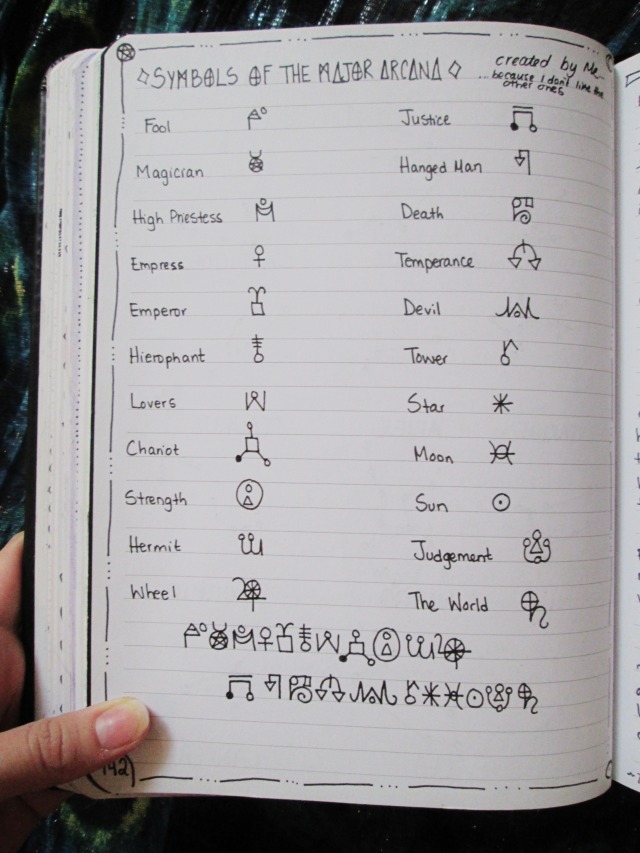 SYMBOLS OF THE MAJOR ARCANA
created by Me
...because I don't like the
other ones
Fool
Magician
High Priestess
Empress
Emperor
Hierophant
Lovers
Chariot
Strength
Hermit
Wheel
Justice
Hanged Man
Death
Temperance
Devil
Tower
Star
Moon
Sun
Judgement
The World
142